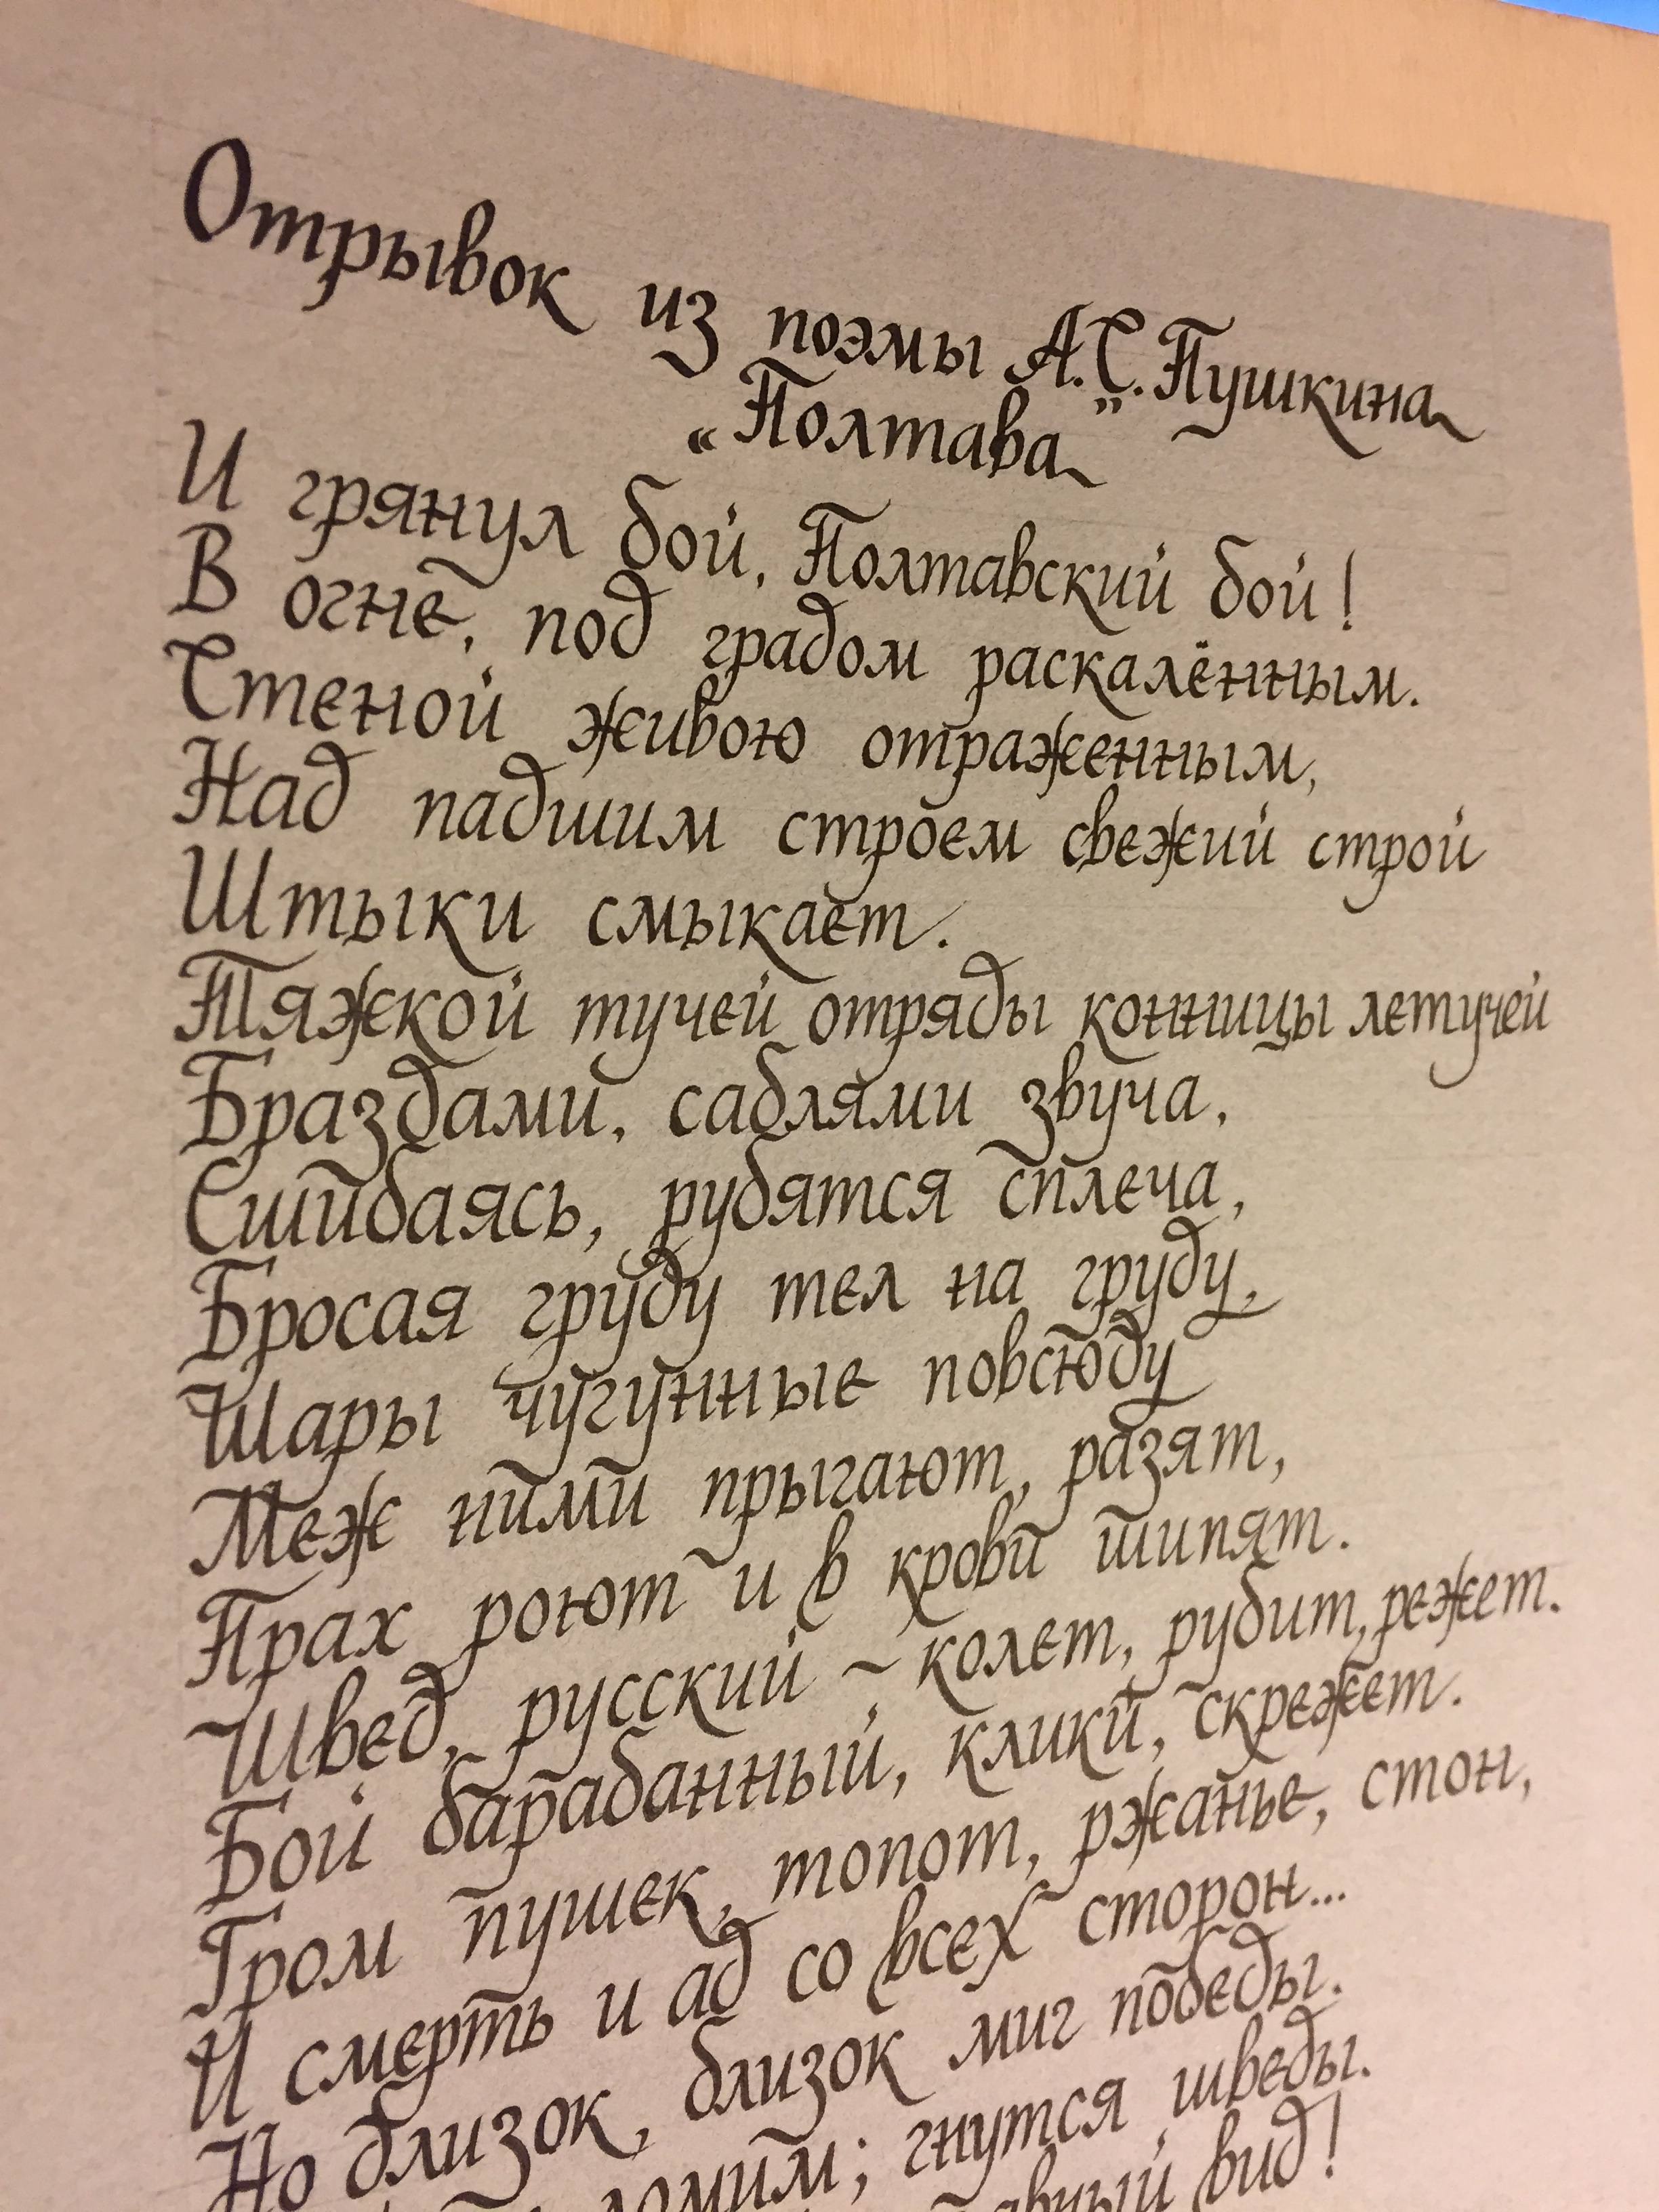 Отрывок из поэмы А.С. Пушкина
„Полтава”
И грянул бой, Полтавский бой!
В огне, под градом раскалённым.
Стеной живою отраженным,
Над падшим строем свежий строй
Штыки смыкает.
Тяжкой тучей отряды конницы летучей
Браздами, саблями звуча,
Сшибаясь, рубятся сплеча,
Бросая груду тел на груду,
Шары чугунные повсюду
Меж ними прыгают, разят,
Прах роют и в крови шипят.
Швед, русский ~ колет, рубит, режет.
Бой барабанный, клики, скрежет.
Гром пушек, топот, ржанье, стон,
И смерть и ад со всех сторон...
Но близок, близок миг победы.
ломим; гнутся шведы.
вид!